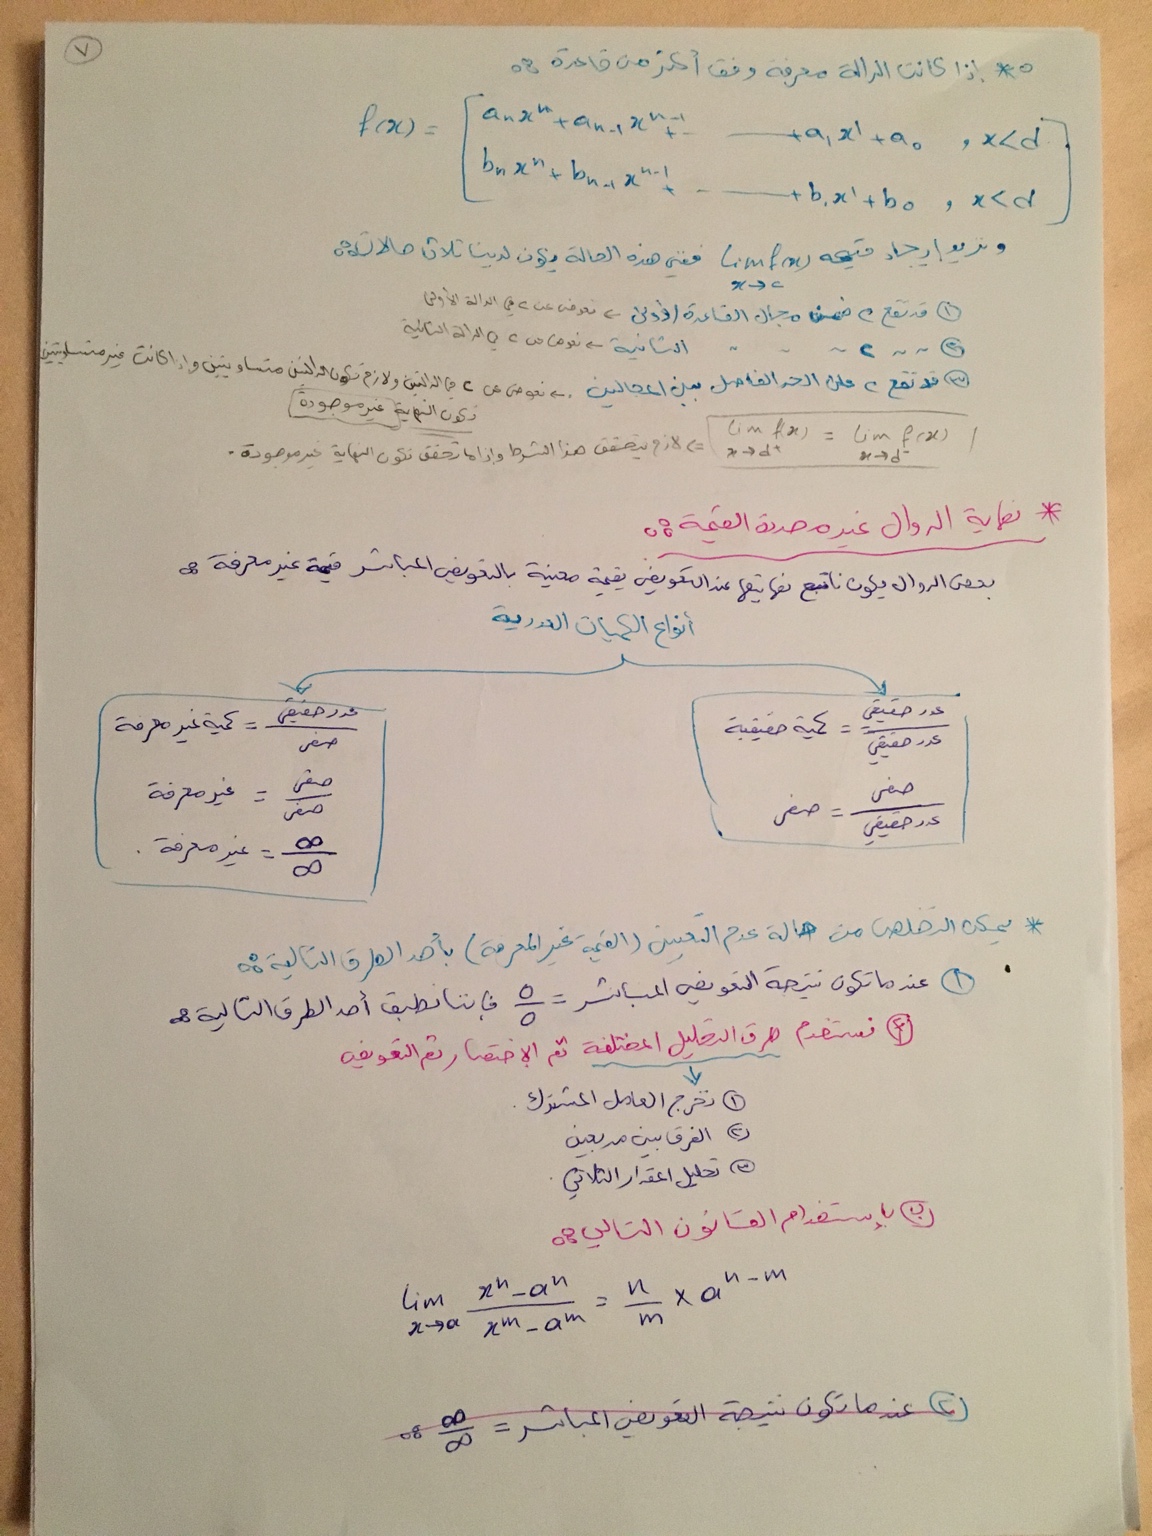 ٧
٥* إذا كانت الدالة معرفة وفق أكثر من قاعدة :
f(x) = [ aₙxⁿ + aₙ₋₁xⁿ⁻¹ + - —— + a₁x¹ + a₀ , x < d
bₙxⁿ + bₙ₋₁xⁿ⁻¹ + - —— + b₁x¹ + b₀ , x < d ]
ونريد إيجاد قيمة lim f(x) ففي هذه الحالة يكون لدينا ثلاث حالات :
x→c
① قد تقع c ضمن مجال القاعدة الأولى ← نعوض عن c في الدالة الأولى
② " " c " " " الثانية ← نعوض عن c في الدالة الثانية
③ قد تقع c على الحد الفاصل بين المجالين ← نعوض عن c في الدالتين ولازم تكون الدالتين متساويتين وإذا كانت غير متساويتين
تكون النهاية غير موجودة
lim f(x) = lim f(x) ⇐ لازم يتحقق هذا الشرط وإذا ما تحقق تكون النهاية غير موجودة .
x→d⁺ x→d⁻
* نهاية الدوال غير محددة القيمة :
بعض الدوال يكون ناتج نهايتها عند التعويض بقيمة معينة بالتعويض المباشر قيمة غير معرفة :
أنواع الكميات العددية
عدد حقيقي / عدد حقيقي = كمية حقيقية
صفر / عدد حقيقي = صفر
عدد حقيقي / صفر = كمية غير معرفة
صفر / صفر = غير معرفة
∞ / ∞ = غير معرفة .
* يمكن التخلص من حالة عدم التعيين (القيمة غير المعرفة) بأحد الطرق التالية :
① عندما تكون نتيجة التعويض المباشر = 0/0 فإننا نطبق أحد الطرق التالية :
أ نستخدم طرق التحليل المختلفة ثم الإختصار ثم التعويض
① نخرج العامل المشترك .
② الفرق بين مربعين
③ تحليل المقدار الثلاثي .
ب بإستخدام القانون التالي :
lim (xⁿ - aⁿ) / (xᵐ - aᵐ) = n/m × aⁿ⁻ᵐ
x→a
② عندما تكون نتيجة التعويض المباشر = ∞/∞ :